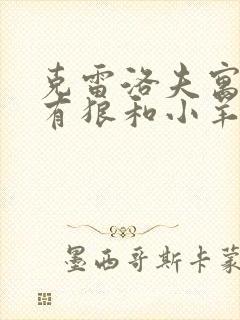 克雷洛夫寓
有狼和小羊
墨西哥斯卡蒙